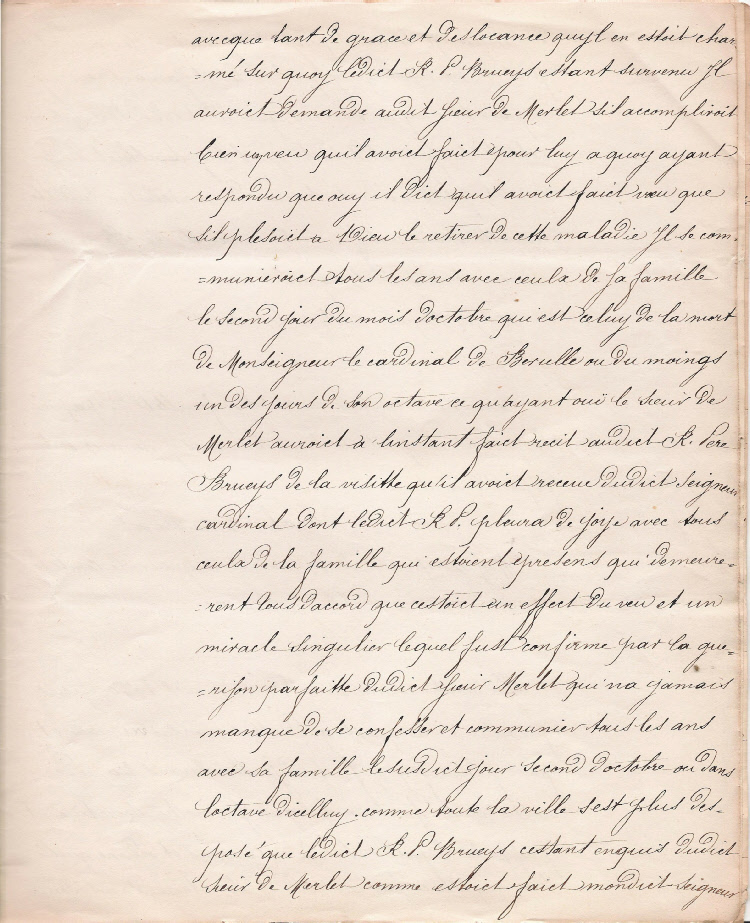 avecque tant de grace et deslocance quyl en estoit char
=mé sur quoy ledict R. P. Brueys estant survenu Il
auroict demande audit sieur de Merlet sil accompliroit
bien un veu quil avoict faict pour luy a quoy ayant
respondu que ouy il dict quil avoict faict veu que
sil plesoict a Dieu le retirer de cette maladie Il se com-
=munieroict tous les ans avec ceula de sa famille
le second jour du mois doctobre qui est celuy de la mort
de Monseigneur le cardinal de Berulle ou du moings
un des jours de son octave ce quayant oui le sieur de
Merlet auroict a linstant faict recit audict R. Pere
Brueys de la visitte qu'il avoict receue dudict seigneur
cardinal dont ledict R P. pleura de joye avec tous
ceula de la famille qui estoient presens qui demeure=
=rent tous daccord que cestoict un effect du veu et un
miracle singulier lequel fust confirme par la gue=
=rison parfaitte dudict sieur Merlet qui na jamais
manque de se confesser et communier tous les ans
avec sa famille le susdict jour second doctobre ou dans
loctave dicelluy. comme toute la ville sest plus des-
posé que ledict R. P. Brueys cestant enquis dudict
sieur de Merlet comme estoict faict mondict seigneur